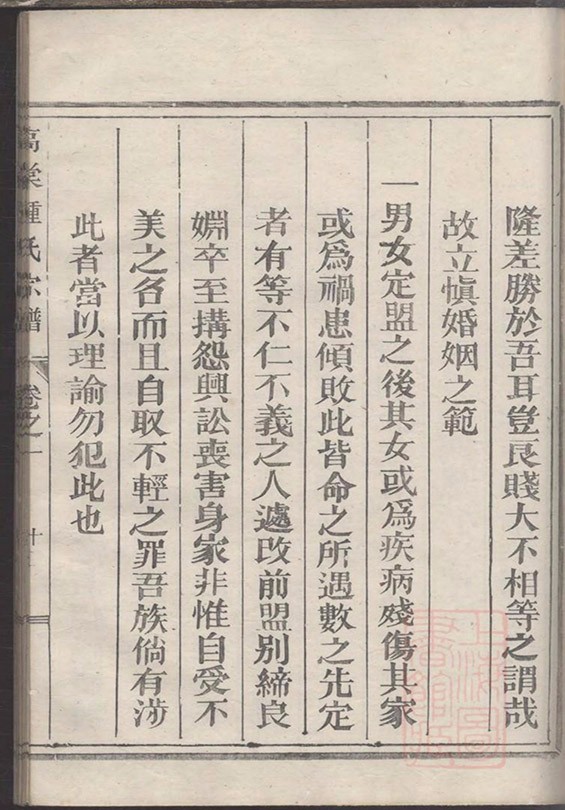 隆差勝於吾耳豈良賤大不相等之謂哉
故立愼婚姻之範
一男女定盟之後其女或爲疾病殘傷其家
或爲禍患傾敗此皆命之所遇數之先定
者有等不仁不義之人遽改前盟別締良
婣卒至搆怨興訟喪害身家非惟自受不
美之名而且自取不輕之罪吾族倘有涉
此者當以理諭勿犯此也
高棠鍾氏宗譜
卷之一
十
上海圖書館藏